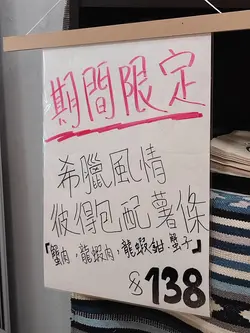 期間限定
希臘風情
彼得包配薯條
『蟹肉·龍蝦肉·龍蝦鉗·蟹子』
$138